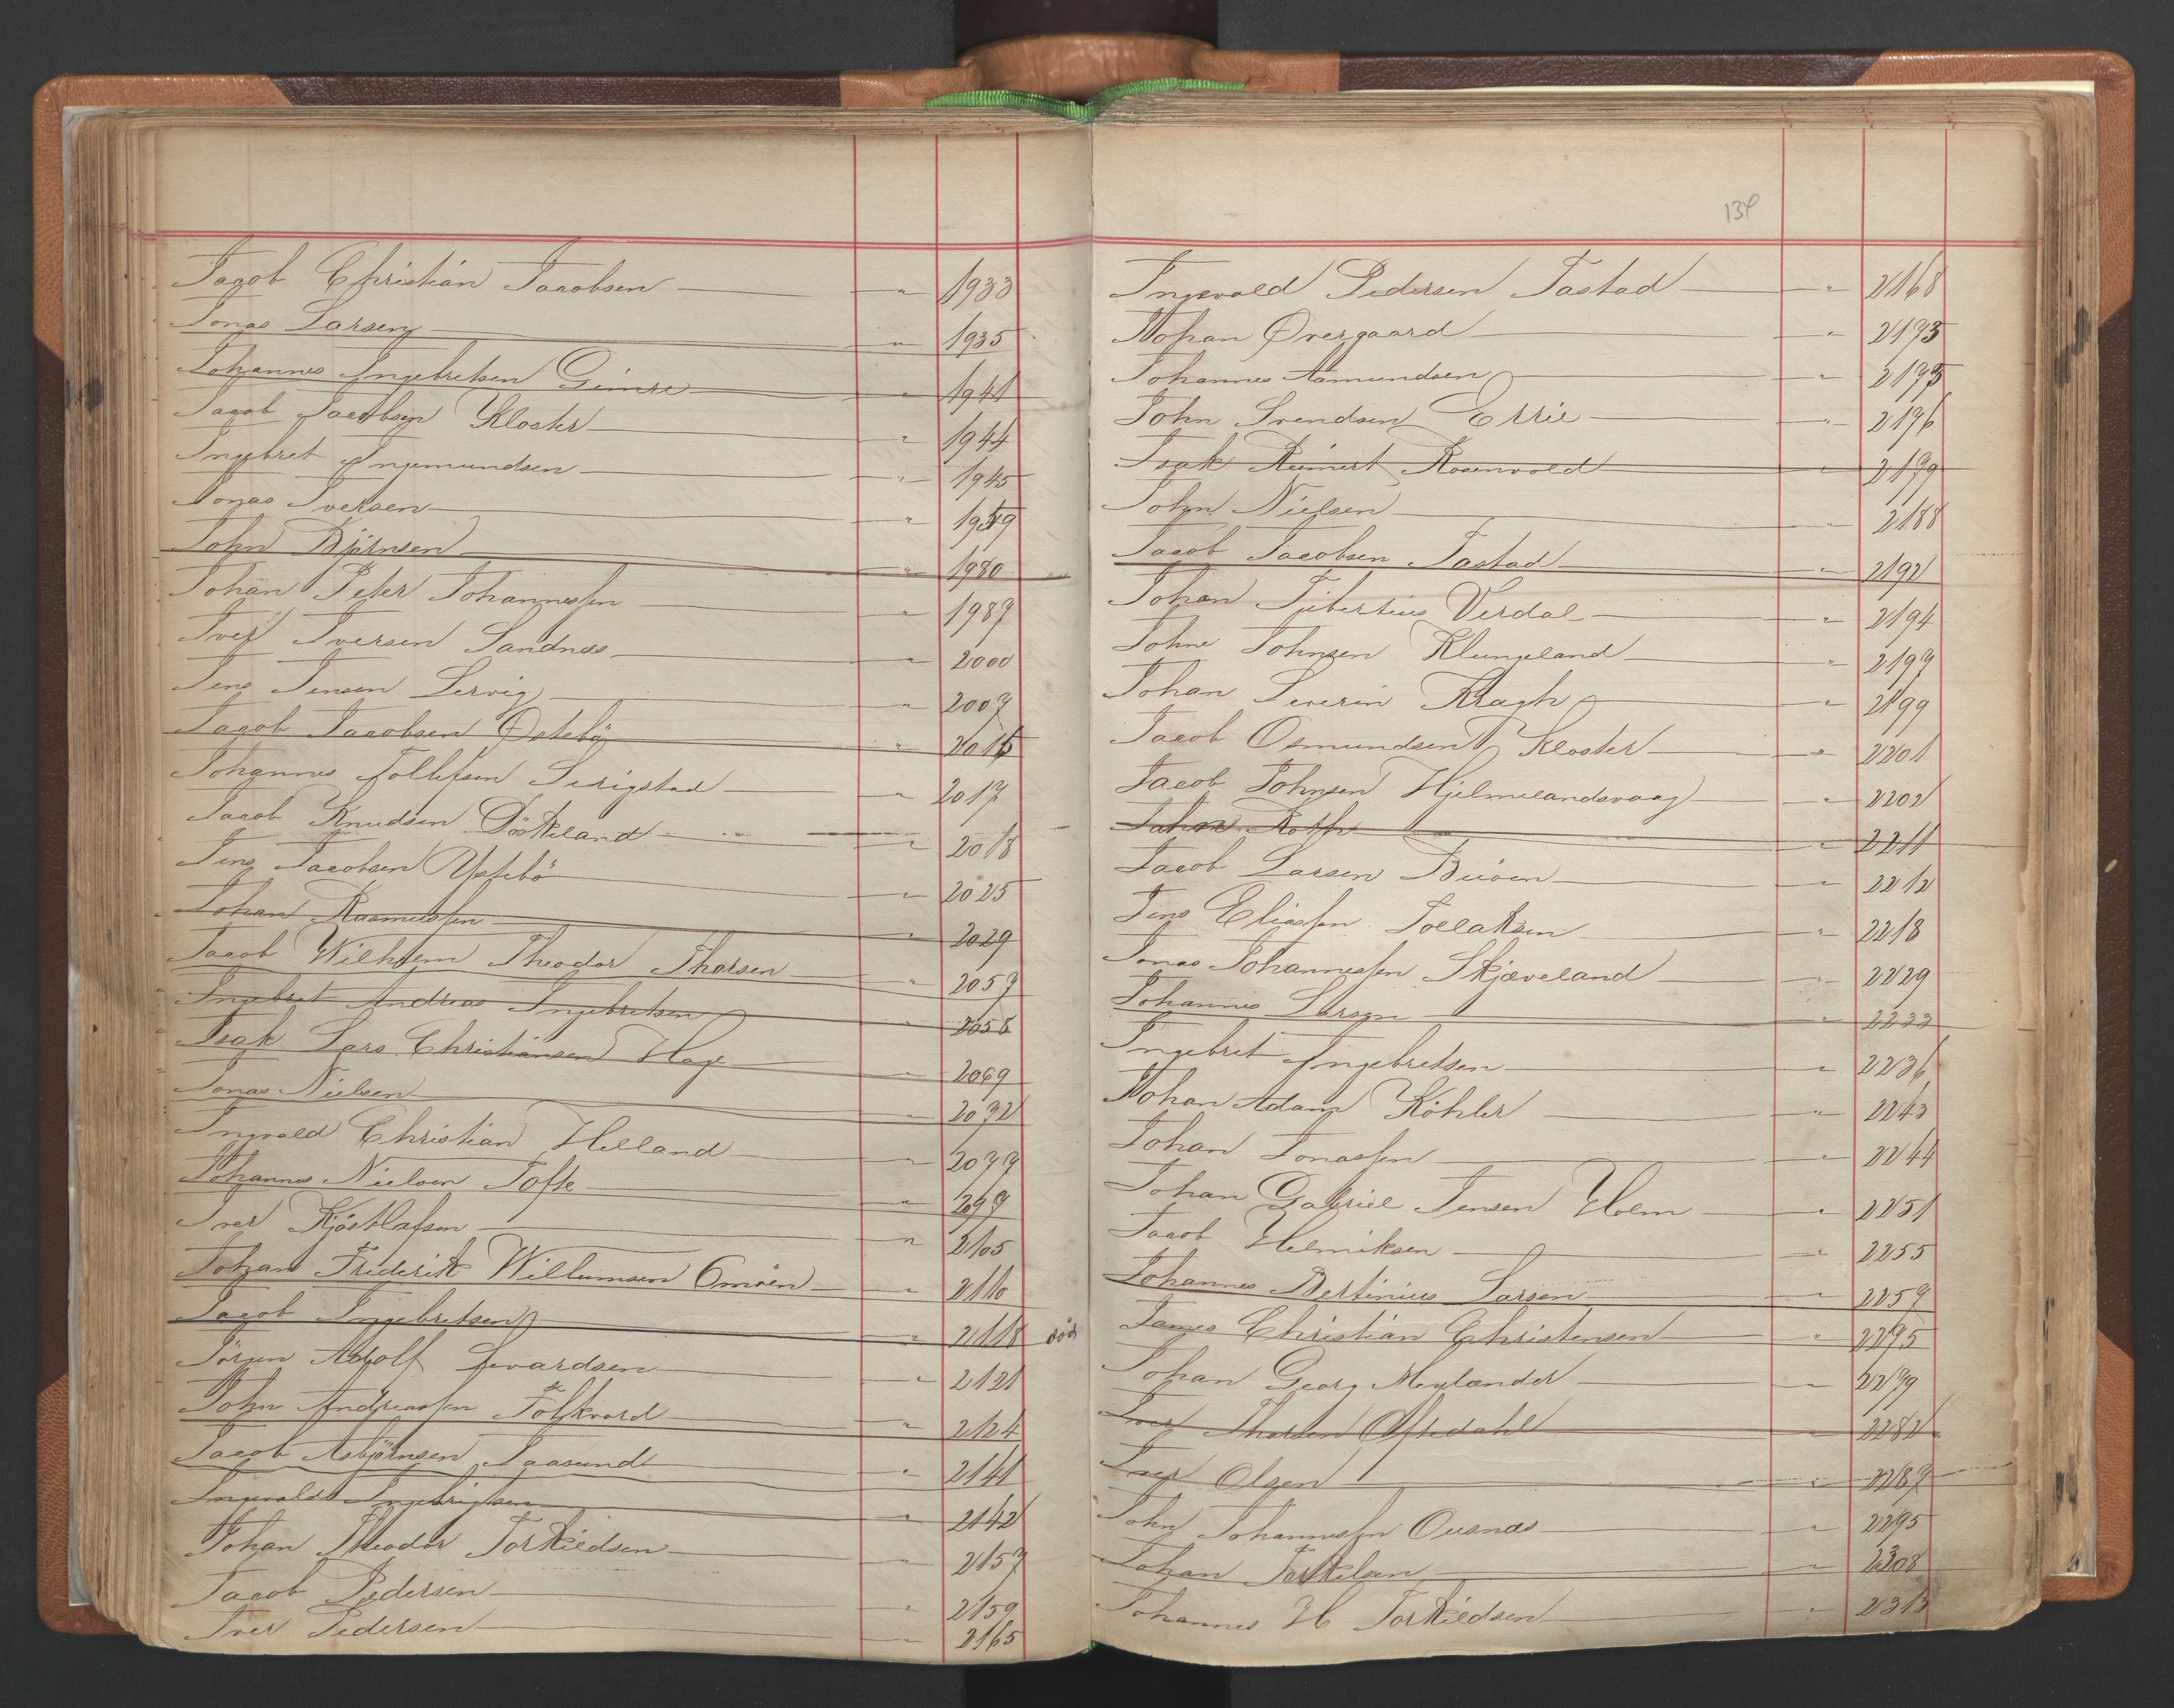 Jacob Christian Jacobsen " 1933
Jonas Larsen " 1935
Johannes Ingebretsen Gimre " 1941
Jacob Jacobsen Kloster " 1944
Ingebret Ingemundsen " 1945
Jonas Iversen "
John Bjørnsen " 1980
Johan Peter Johannessen " 1987
Iver Iversen Sandnæs " 2000
Jens Jensen Lervig " 2007
Jacob Jacobsen Østebø "
Johannes Tollefsen Serigstad " 2017
Jacob Knudsen " 2018
Jens Jacobsen " 2025
Johan Rasmussen " 2029
Jacob Wilhelm Theodor Thorsen " 2057
Ingebret Andreas Ingebretsen " 2058
Isak Lars Christiansen Hage " 2069
Jonas Nielsen " 2072
Ingvald Christian Helland " 2077
Johannes Nielsen Tofte "
Iver " 2105
Johan Frederik Willumsen " 2110
Jacob Ingebretsen " 2118 død
Jörgen Adolf Sivardsen " 2121
John Andreassen Folkvord " 2124
Jacob Asbjörnsen Aasundt " 2141
Ingvald Ingebrigtsen " 2142
Johan Theodor Torkildsen " 2157
Jacob Pedersen " 2159
Iver Pedersen " 2165
134
Ingvald Pedersen Tastad " 2168
Johan Øvergaard " 2173
Johannes Aamundsen " 2175
John Svendsen Errie " 2176
Isak Reinert Rosenvold " 2179
John Nielsen " 2188
Jacob Jacobsen Tastad " 2192
Johan Tibertius Verdal " 2194
John Johnsen Klungeland " 2197
Johan Severin Kragh " 2199
Jacob Osmundsen Kloster " 2201
Jacob Johnsen Hjelmelandsvaag " 2202
Johan " 2211
Jacob Larsen " 2212
Jens Eliassen Tollaksen " 2218
Jonas Johannessen Skjæveland " 2229
Johannes Larsen " 2233
Ingebret Ingebretsen " 2236
Johan Adam Köhler " 2243
Johan Jonassen " 2244
Johan Gabriel Jensen Holm " 2251
Jacob Helmiksen " 2255
Johannes Bertinius Larsen " 2259
James Christian Christensen " 2275
Johan Georg Meylænder " 2279
Iver Thorsen Oftedahl " 2282
Iver Olsen " 2287
John Johannessen Ousnæs " 2295
Johan Torkelsen " 2308
Johannes H Torkildsen " 2313